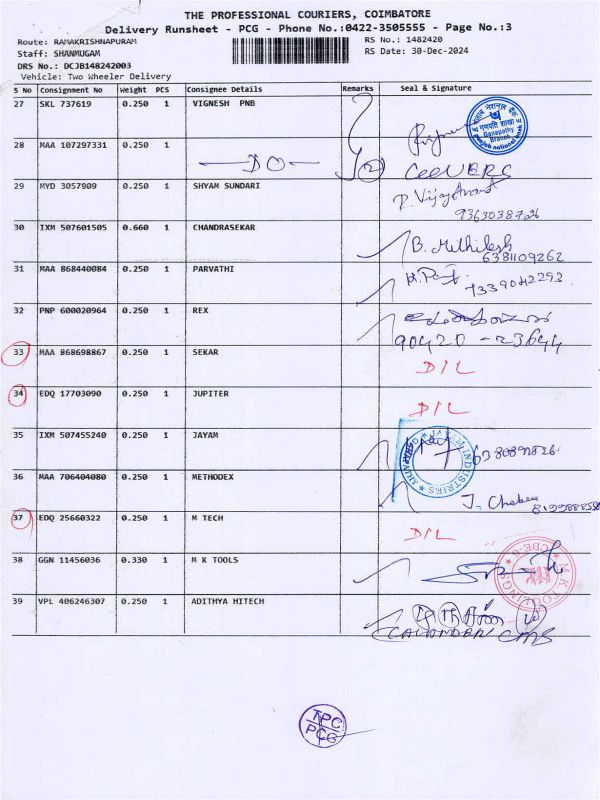 THE PROFESSIONAL COURIERS, COIMBATORE
Delivery Runsheet - PCG - Phone No.:0422-3505555 - Page No.:3
Route: RAMAKRISHNAPURAM RS No.: 1482420
Staff: SHANMUGAM RS Date: 30-Dec-2024
DRS No.: DCJB148242003
Vehicle: Two Wheeler Delivery
S No Consignment No Weight PCS Consignee Details Remarks Seal & Signature
27 SKL 737619 0.250 1 VIGNESH PNB
Ganapathy
Branch
punjab national bank
28 MAA 107297331 0.250 1 DO 2
29 MYD 3057909 0.250 1 SHYAM SUNDARI
9363038726
30 IXM 507601505 0.660 1 CHANDRASEKAR B. Mithilesh
6381109262
31 MAA 868440084 0.250 1 PARVATHI
7339042293
32 PNP 600020964 0.250 1 REX
90420-23644
33 MAA 868698867 0.250 1 SEKAR D/L
34 EDQ 17703090 0.250 1 JUPITER D/L
35 IXM 507455240 0.250 1 JAYAM
INDUSTRIES
36 MAA 706404080 0.250 1 METHODEX
37 EDQ 25660322 0.250 1 M TECH D/L
38 GGN 11456036 0.330 1 M K TOOLS
M.K TOOLINGS CBE-6
39 VPL 406246307 0.250 1 ADITHYA HITECH
TPC
PCG